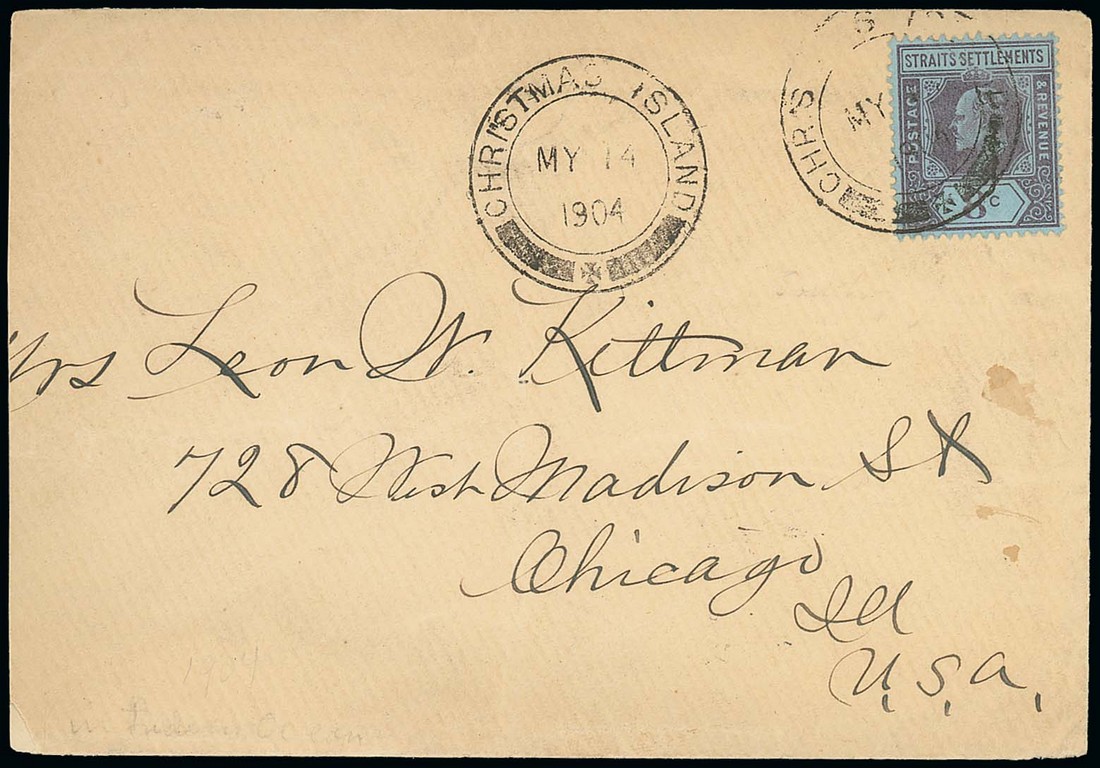 CHRISTMAS ISLAND
MY 14
1904
CHRIS
MY
STRAITS SETTLEMENTS
POSTAGE
& REVENUE
8c
Mrs Leon W. Kittman
728 West Madison St
Chicago
Ill
U.S.A.
1904
in Indian Ocean